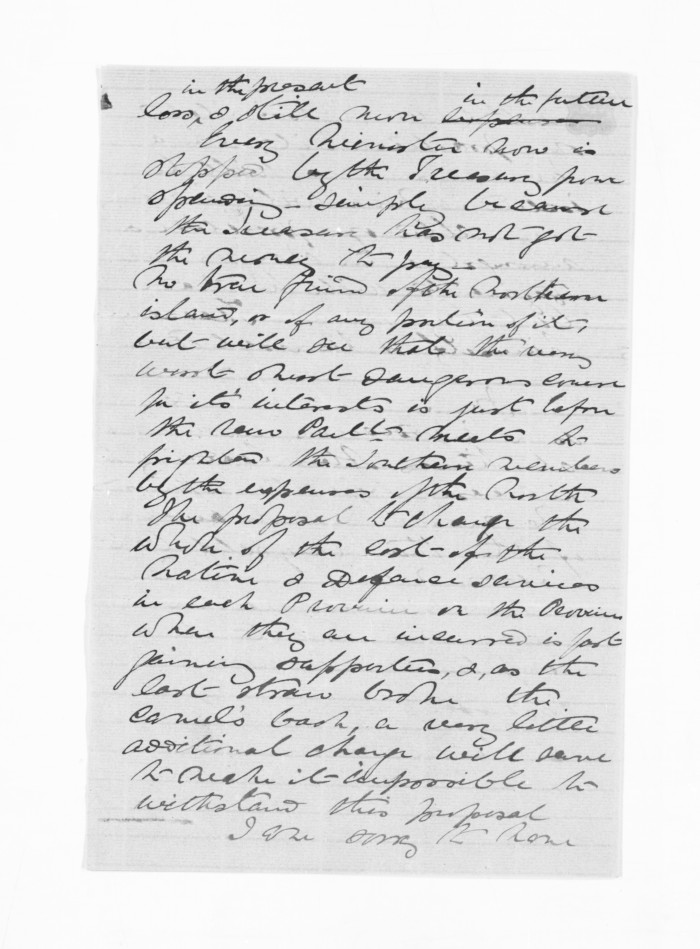 in the present in the future
loss, & still more expenses
Every Minister now is
stopped by the Treasury from
spending simple because
the Treasury has not got
the money to pay
No true friend of the Northern
island, or of any portion of it,
but will see that the very
worst & most dangerous course
for it's interests is just before
the new Parlt meets to
frighten the Southern members
by the expenses of the North
The proposal to charge the
whole of the cost of the
Native & Defence services
in each Province on the Province
where they are incurred is fast
gaining supporters, &, as the
last straw broke the
camel's back, a very little
additional charge will serve
to make it impossible to
withstand this proposal
I am sorry to have